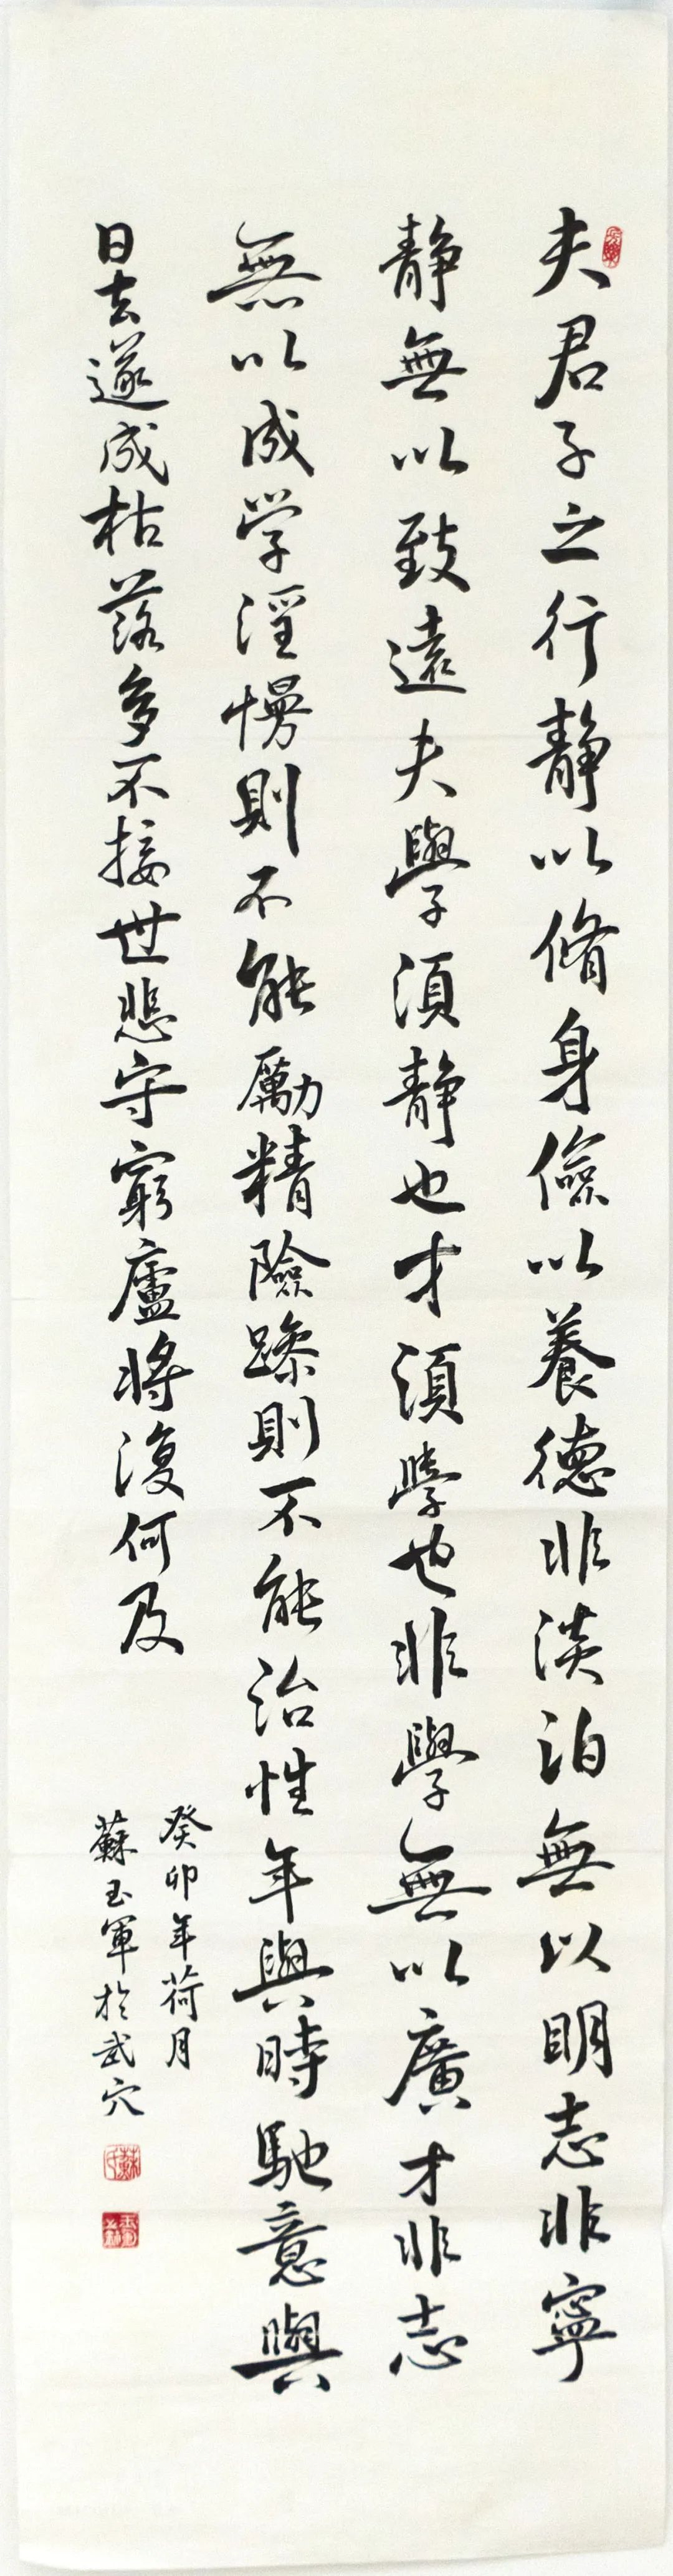 夫君子之行静以脩身儉以養德非淡泊無以明志非寧
静無以致遠夫學須静也才須學也非學無以廣才非志
無以成学淫慢則不能勵精險躁則不能治性年與時馳意與
日去遂成枯落多不接世悲守窮廬將復何及
癸卯年荷月
蘇玉軍於武穴